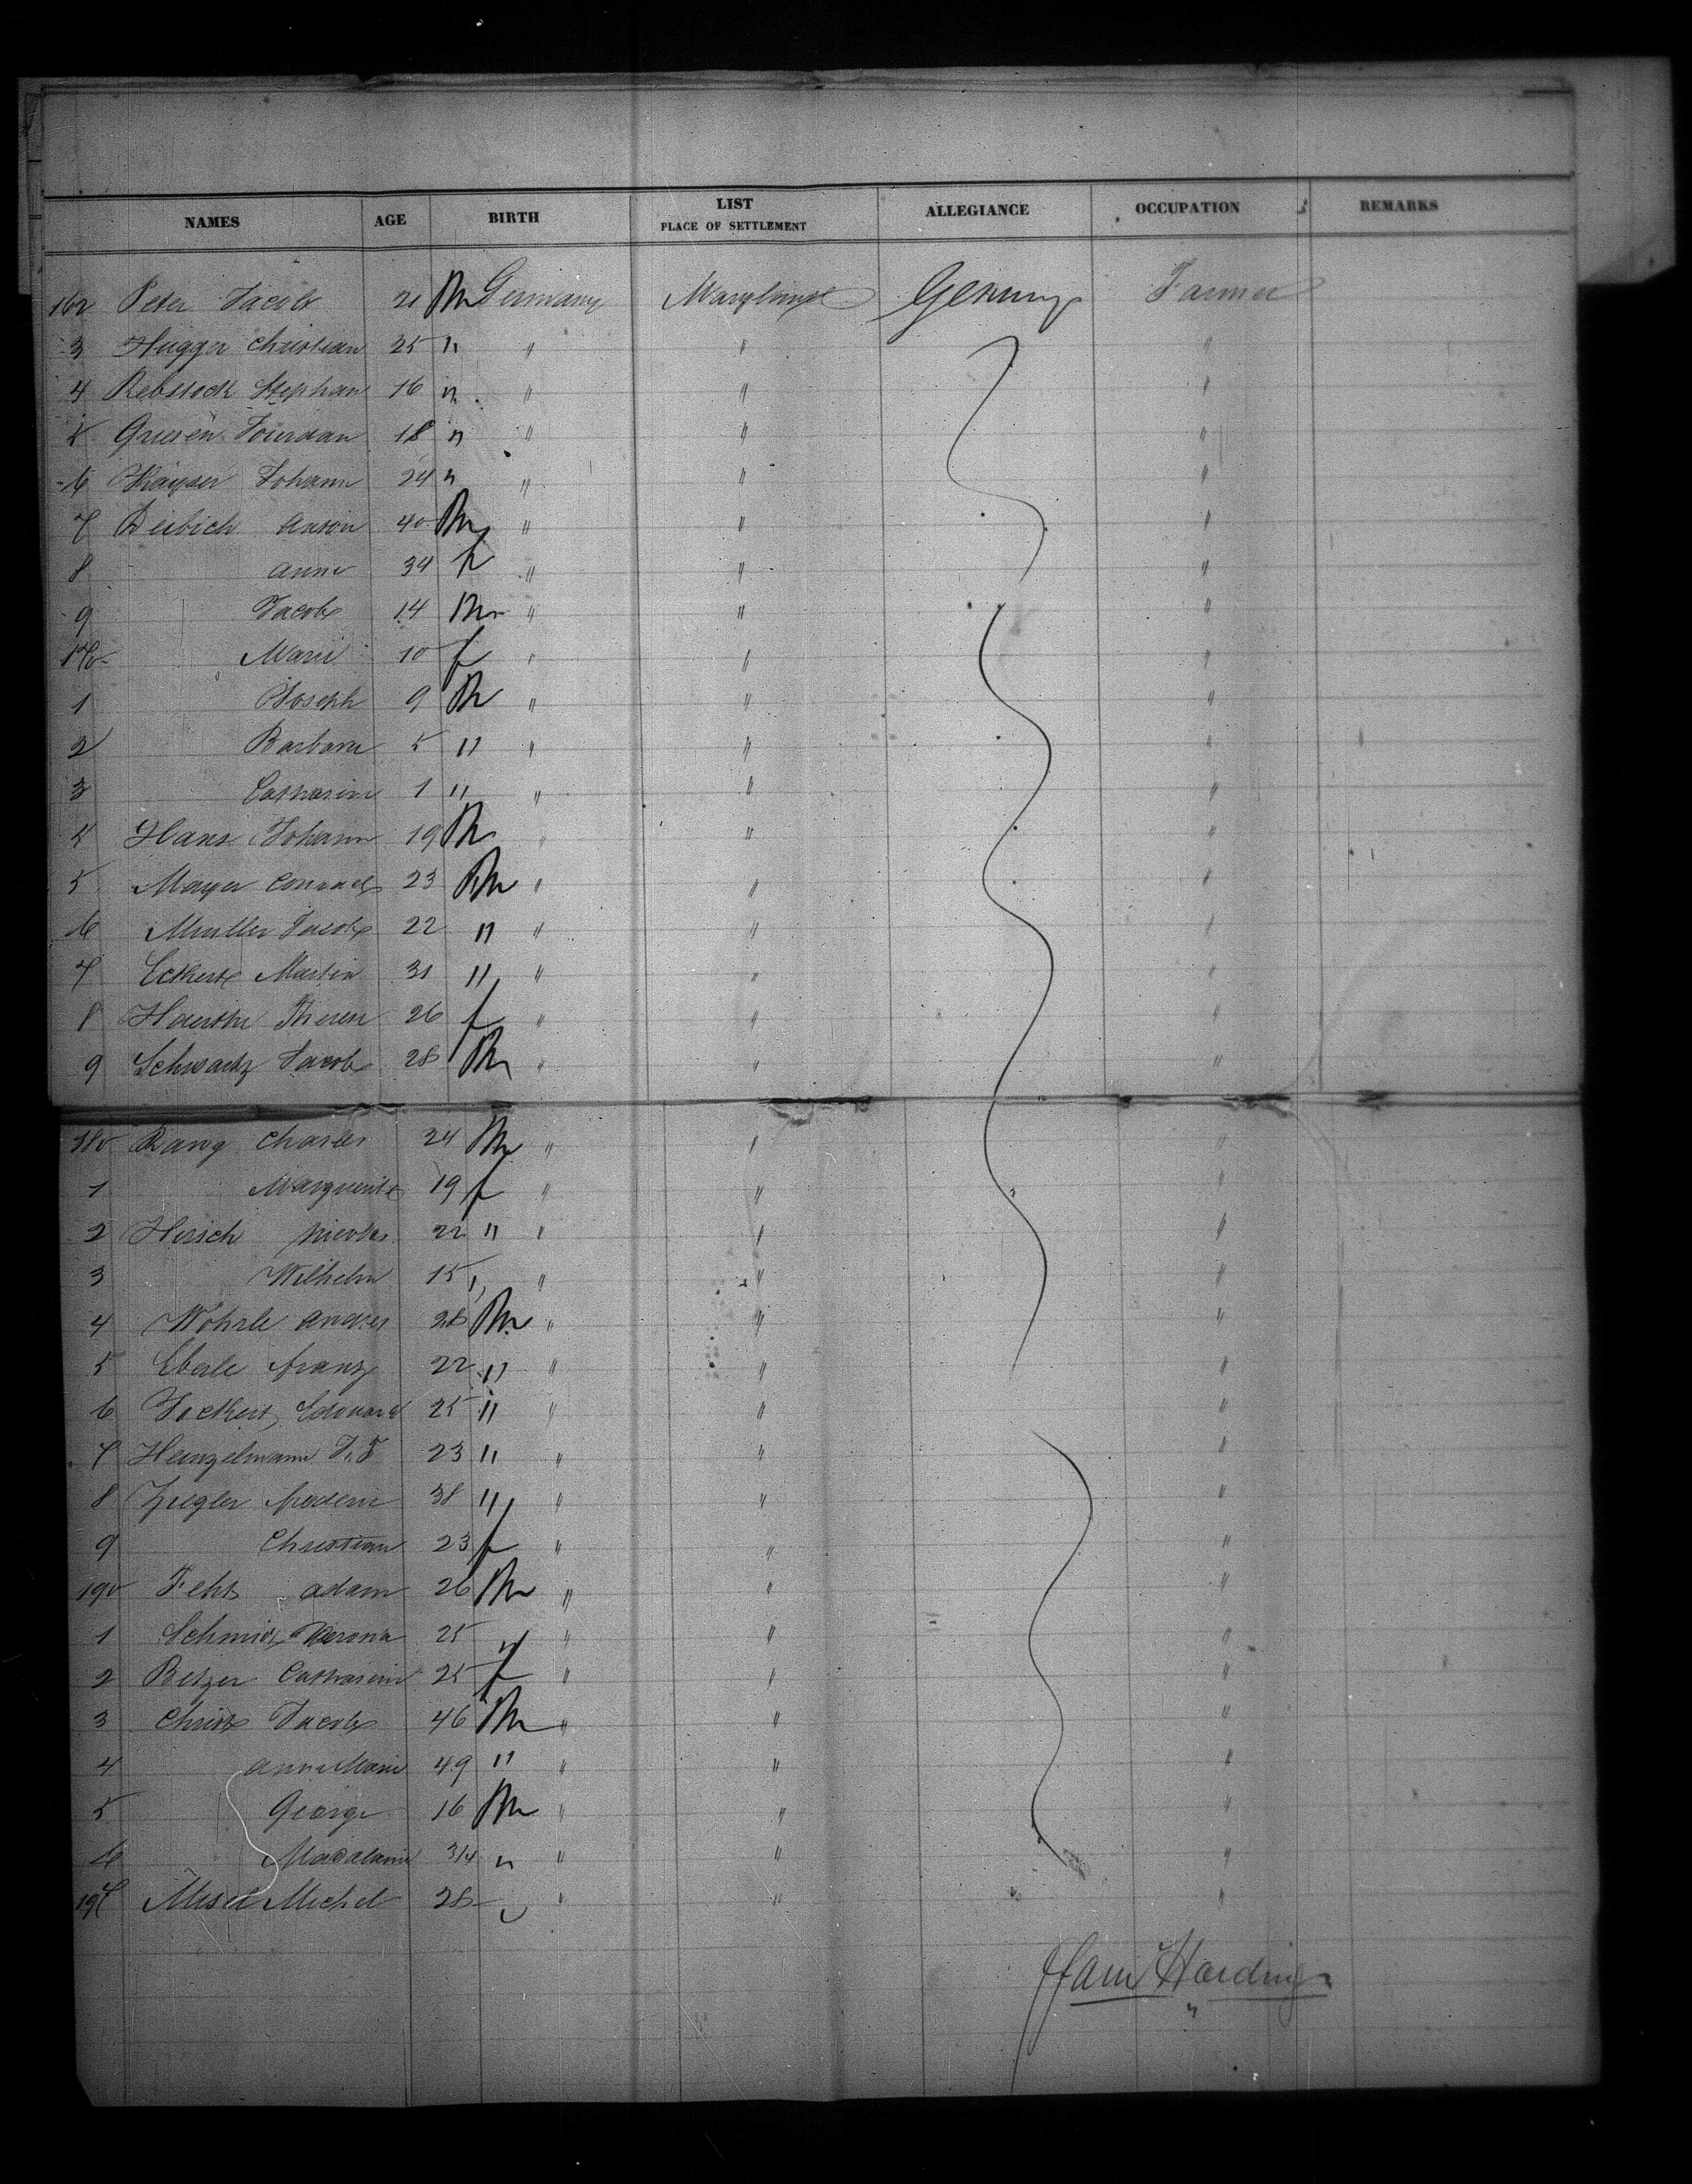 NAMES AGE BIRTH LIST PLACE OF SETTLEMENT ALLEGIANCE OCCUPATION REMARKS
162 Peter Jacob 21 M Germany Germany Farmer
3 Hugger Christian 25 " " " "
4 Rebstock Stephan 16 " " " "
5 18 " " " "
6 Johann 24 " " " "
7 Anton 40 M " " "
8 Anna 34 f " " "
9 Jacob 14 M " " "
170 Marie 10 f " " "
1 Joseph 9 M " " "
2 Barbara 5 " " " "
3 Catharine 1 " " " "
4 Hans Johann 19 M " " "
5 Mayer Conrad 23 M " " "
6 Muller Jacob 22 " " " "
7 Eckert Martin 31 " " " "
8 26 f " " "
9 Schwartz Jacob 28 M " " "
180 Rang Charles 24 M " " "
1 Marguerite 19 f " " "
2 Hirsch Nicolas 22 " " " "
3 Wilhelm 15 " " " "
4 Wöhrle Andres 28 M " " "
5 Eberle Franz 22 " " " "
6 Edouard 25 " " " "
7 Heinzelmann J. F 23 " " " "
8 Ziegler 38 " " " "
9 Christian 23 f " " "
190 Adam 26 M " " "
1 Schmidt Verona 25 " " " "
2 Betzer Catharine 25 f " " "
3 Christ Jacob 46 M " " "
4 Anna Marie 49 " " " "
5 George 16 M " " "
6 Madalaine 3/4 " " " "
197 Michel 28 " " " "
Harding